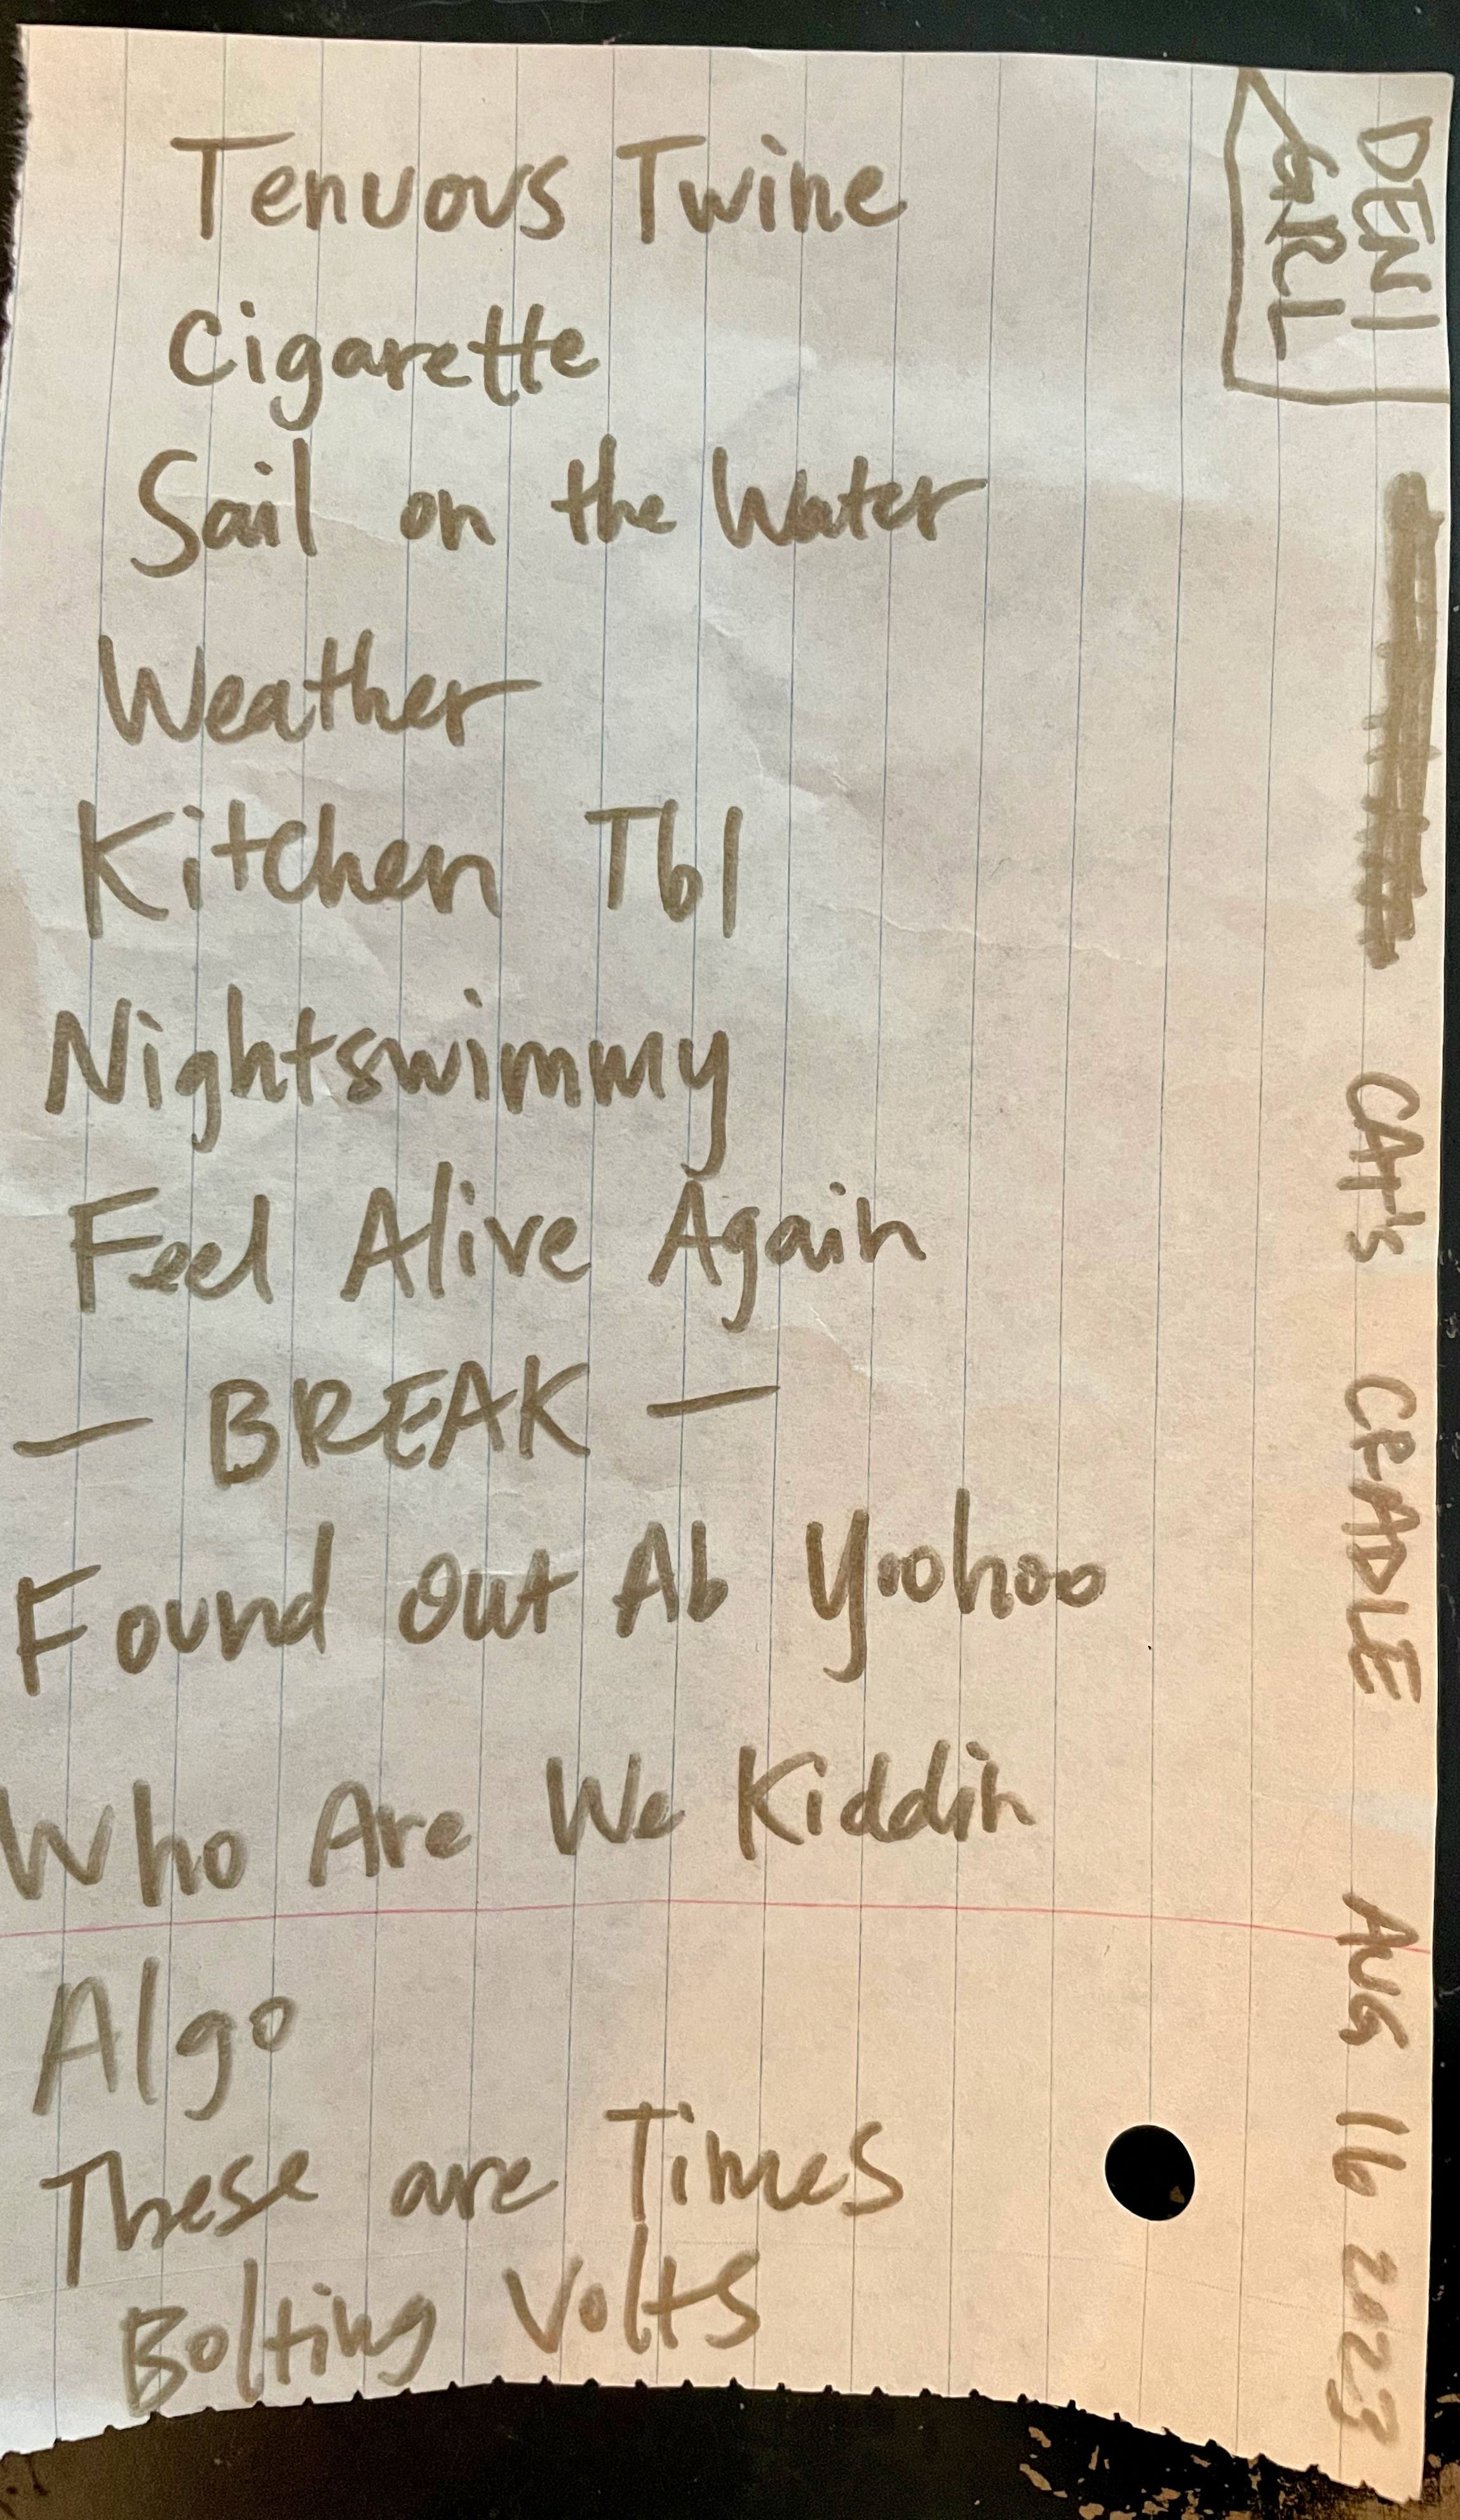 Tenuous Twine
Cigarette
Sail on the Water
Weather
Kitchen Tbl
Nightswimmy
Feel Alive Again
— BREAK —
Found Out Ab Yoohoo
Who Are We Kiddin
Algo
These are Times
Bolting Volts
DENI
GRL
CAt's CRADLE AUG 16 2023